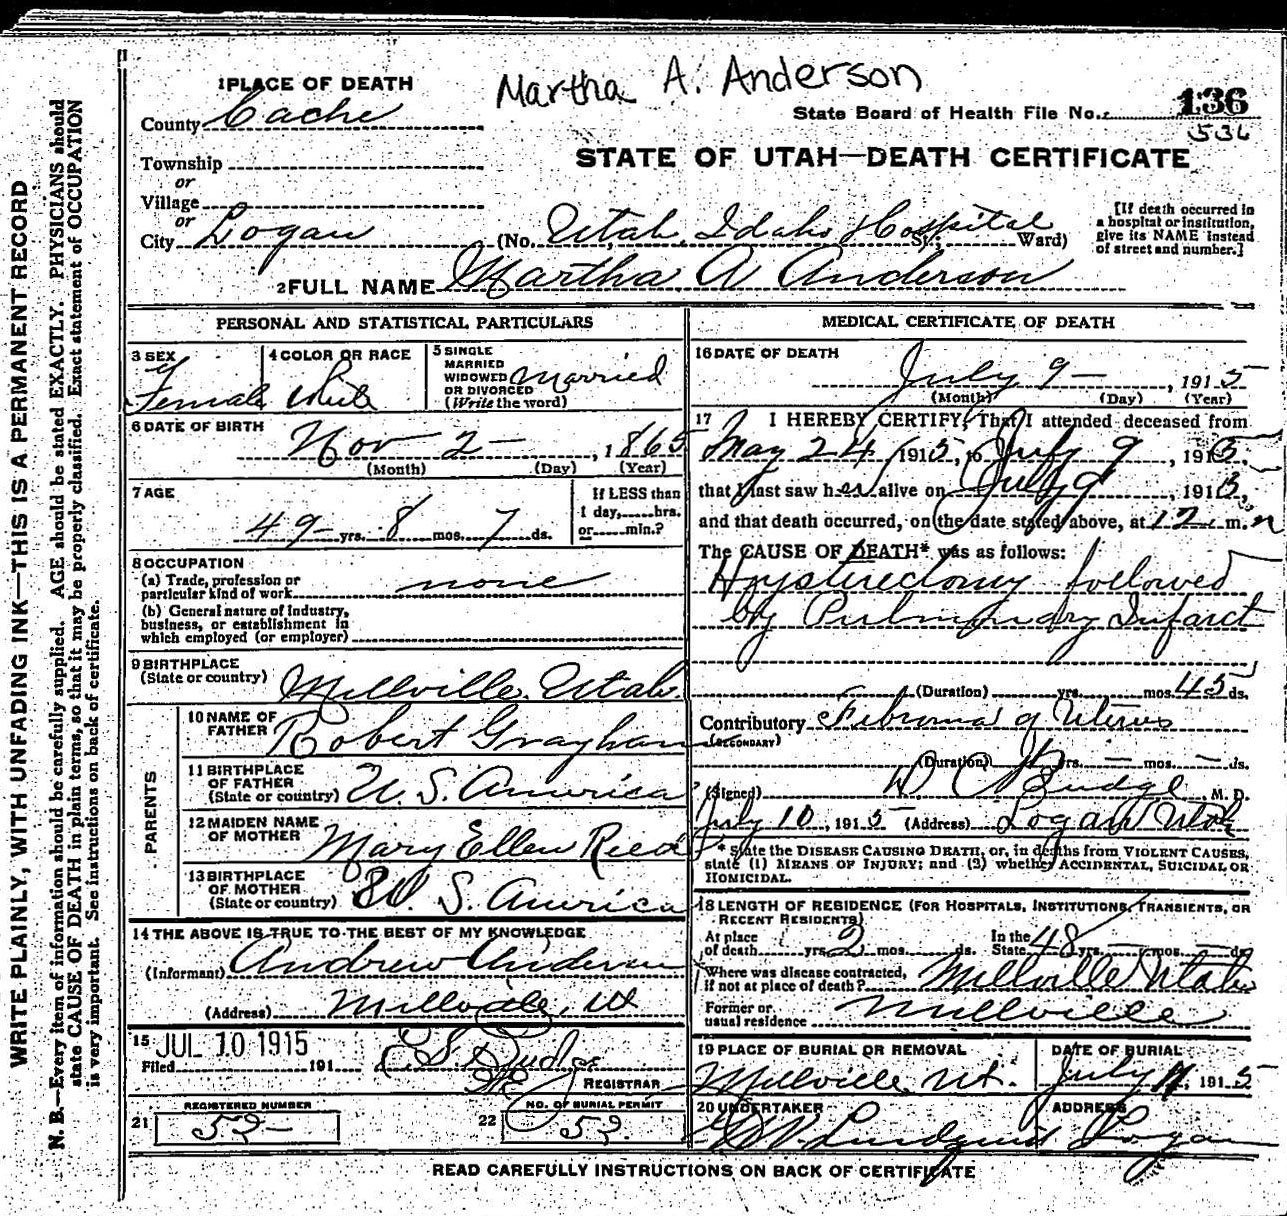 Martha A. Anderson
1 PLACE OF DEATH
County Cache
State Board of Health File No. 136
536
Township
or
Village
or
City Logan
STATE OF UTAH—DEATH CERTIFICATE
(No. Utah Idaho Hospital St.; Ward)
[If death occurred in
a hospital or institution,
give its NAME instead
of street and number.]
2 FULL NAME Martha A Anderson
PERSONAL AND STATISTICAL PARTICULARS
3 SEX
Female
4 COLOR OR RACE
White
5 SINGLE
MARRIED
WIDOWED
OR DIVORCED
(Write the word)
married
6 DATE OF BIRTH
Nov 2 — , 1865
(Month) (Day) (Year)
7 AGE
49 yrs. 8 mos. 7 ds.
If LESS than
1 day,......hrs.
or......min.?
8 OCCUPATION
(a) Trade, profession or
particular kind of work none
(b) General nature of industry,
business, or establishment in
which employed (or employer)
9 BIRTHPLACE
(State or country) Millville Utah
PARENTS
10 NAME OF
FATHER Robert Grayham
11 BIRTHPLACE
OF FATHER
(State or country) U. S. America
12 MAIDEN NAME
OF MOTHER Mary Ellen Reed
13 BIRTHPLACE
OF MOTHER
(State or country) U. S. America
14 THE ABOVE IS TRUE TO THE BEST OF MY KNOWLEDGE
(Informant) Andrew Anderson
(Address) Millville, Ut
15
Filed JUL 10 1915 191
REGISTRAR
21 REGISTERED NUMBER
52
22 NO. OF BURIAL PERMIT
52.
MEDICAL CERTIFICATE OF DEATH
16 DATE OF DEATH
July 9 — , 1915
(Month) (Day) (Year)
17 I HEREBY CERTIFY, That I attended deceased from
May 24 1915, to July 9, 1915
that I last saw her alive on July 9, 1915,
and that death occurred, on the date stated above, at 12 m.
The CAUSE OF DEATH* was as follows:
Hysterectomy followed
by Pulmonary Infarct
(Duration) yrs. mos. 45 ds.
Contributory Fibroma of Uterus
(SECONDARY)
(Duration) yrs. — mos. — ds.
(Signed) D C Budge M. D.
July 10, 1915 (Address) Logan Utah
* State the DISEASE CAUSING DEATH, or, in deaths from VIOLENT CAUSES,
state (1) MEANS OF INJURY; and (2) whether ACCIDENTAL, SUICIDAL OR
HOMICIDAL.
18 LENGTH OF RESIDENCE (FOR HOSPITALS, INSTITUTIONS, TRANSIENTS, OR
RECENT RESIDENTS)
At place
of death yrs. 2 mos. ds.
In the
State 48 yrs. — mos. — ds.
Where was disease contracted,
if not at place of death? Millville Utah
Former or
usual residence Millville
19 PLACE OF BURIAL OR REMOVAL
Millville, Ut.
DATE OF BURIAL
July 11, 1915
20 UNDERTAKER
Lundquist
ADDRESS
Logan
READ CAREFULLY INSTRUCTIONS ON BACK OF CERTIFICATE
WRITE PLAINLY, WITH UNFADING INK—THIS IS A PERMANENT RECORD
N. B.—Every item of information should be carefully supplied. AGE should be stated EXACTLY. PHYSICIANS should
state CAUSE OF DEATH in plain terms, so that it may be properly classified. Exact statement of OCCUPATION
is very important. See instructions on back of certificate.